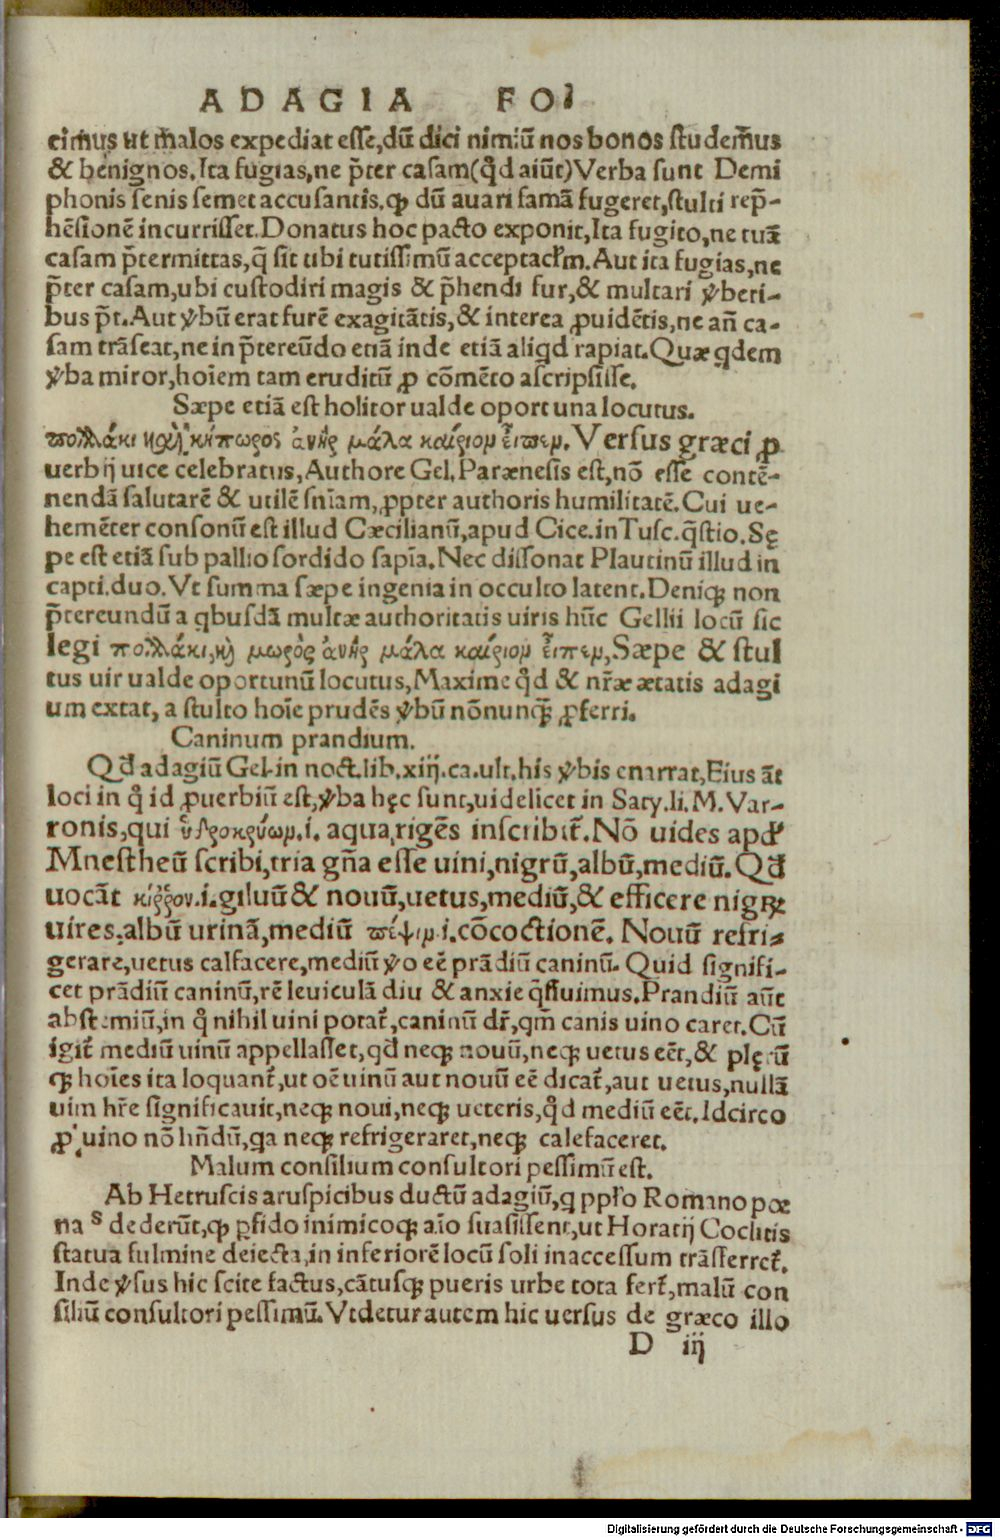 ADAGIA FO
cim̃us ut m̃alos expediat esse, dũ dici nimiũ nos bonos studem̃us
& benignos. Ita fugias, ne p̃ter casam (q̃d aiũt) Verba sunt Demi
phonis senis semet accusantis, ꝙ dũ auari famã fugeret, stulti rep̃-
hẽsionẽ incurrisset. Donatus hoc pacto exponit, Ita fugito, ne tuã
casam p̃termittas, q̃ sit tibi tutissimũ acceptacl̃m. Aut ita fugias, ne
p̃ter casam, ubi custodiri magis & p̃hendi fur, & multari ṽberi-
bus p̃t. Aut ṽbũ erat furẽ exagitãtis, & interea ꝓuidẽtis, ne añ ca-
sam trãseat, ne in p̃tereũdo etiã inde etiã aliqd rapiat. Quæ qdem
ṽba miror, hoĩem tam eruditũ ꝓ cõmẽto ascripsisse.
Sæpe etiã est holitor ualde oportuna locutus.
πολλάκι καὶ κηπωρος ἀνὴρ μάλα καίριον εἶπεν. Versus græci ꝓ
uerbij uice celebratus, Authore Gel. Parænesis est, nõ esse contẽ-
nendã salutarẽ & utilẽ sñiam, ꝓpter authoris humilitatẽ. Cui ue-
hemẽter consonũ est illud Cæcilianũ, apud Cice. in Tusc. q̃stio. Sę
pe est etiã sub pallio sordido sapĩa. Nec dissonat Plautinũ illud in
capti. duo. Vt summa sæpe ingenia in occulto latent. Deniqꝫ non
p̃tereundũ a qbusdã multæ authoritatis uiris hũc Gellii locũ sic
legi πολλάκι, καὶ μωρὸς ἀνὴρ μάλα καίριον εἶπεν, Sæpe & stul
tus uir ualde oportunũ locutus, Maxime q̃d & nr̃æ ætatis adagi
um extat, a stulto hoĩe prudẽs ṽbũ nõnunqꝫ̃ ꝓferri.
Caninum prandium.
Qd̃ adagiũ Gel. in noct. lib. xiij. ca. ult. his ṽbis enarrat, Eius ãt
loci in q̃ id ꝓuerbiũ est, ṽba hęc sunt, uidelicet in Saty. li. M. Var-
ronis, qui ὑδροκρύωμ. i. aqua rigẽs inscribit̃. Nõ uides apd̃
Mnestheũ scribi, tria gña esse uini, nigrũ, albũ, mediũ. Qd̃
uocãt κίρρον. i. giluũ & nouũ, uetus, mediũ, & efficere nigꝝ
uires, albũ urinã, mediũ πέψιμ. i. cõcoctionẽ. Nouũ refri-
gerare, uetus calfacere, mediũ ṽo eẽ prãdiũ caninũ. Quid signifi-
cet prãdiũ caninũ, rẽ leuiculã diu & anxie q̃siuimus. Prandiũ aũt
abstemiũ, in q̃ nihil uini potat̃, caninũ dr̃, qm̃ canis uino caret. Cũ
igit̃ mediũ uinũ appellasset, qd̃ neqꝫ nouũ, neqꝫ uetus eẽt, & plęrũ
qꝫ hoĩes ita loquant̃, ut oẽ uinũ aut nouũ eẽ dicat̃, aut uetus, nullã
uim hr̃e significauit, neqꝫ noui, neqꝫ ueteris, q̃d mediũ eẽt. Idcirco
ꝓ uino nõ hñdũ, qa neqꝫ refrigeraret, neqꝫ calefaceret.
Malum consilium consultori pessimũ est.
Ab Hetruscis aruspicibus ductũ adagiũ, q ppl̃o Romano pœ
nas dederũt, ꝙ ꝑfido inimicoqꝫ aĩo suasissent, ut Horatij Coclitis
statua fulmine deiecta, in inferiorẽ locũ soli inaccessum trãsferret̃.
Inde ṽsus hic scite factus, cãtusqꝫ pueris urbe tota fert̃, malũ con
siliũ consultori pessimũ. Vt detur autem hic uersus de græco illo
D iij
Digitalisierung gefördert durch die Deutsche Forschungsgemeinschaft - DFG